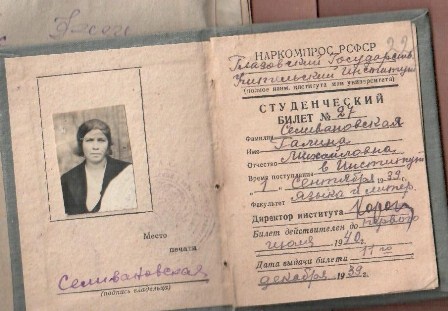 Место
печати
Селивановская
(подпись владельца)
НАРКОМПРОС РСФСР
Глазовский Государств.
Учительский Институт
(полное наим. института или университета)
СТУДЕНЧЕСКИЙ
БИЛЕТ № 27
Фамилия Селивановская
Имя Галина
Отчество Михайловна
Время поступления в Институт
"1" Сентября 1939 г.
Факультет языка и литер.
Директор института
Билет действителен до первого
июля 1940 г.
Дата выдачи билета 11 го
декабря 1939 г.